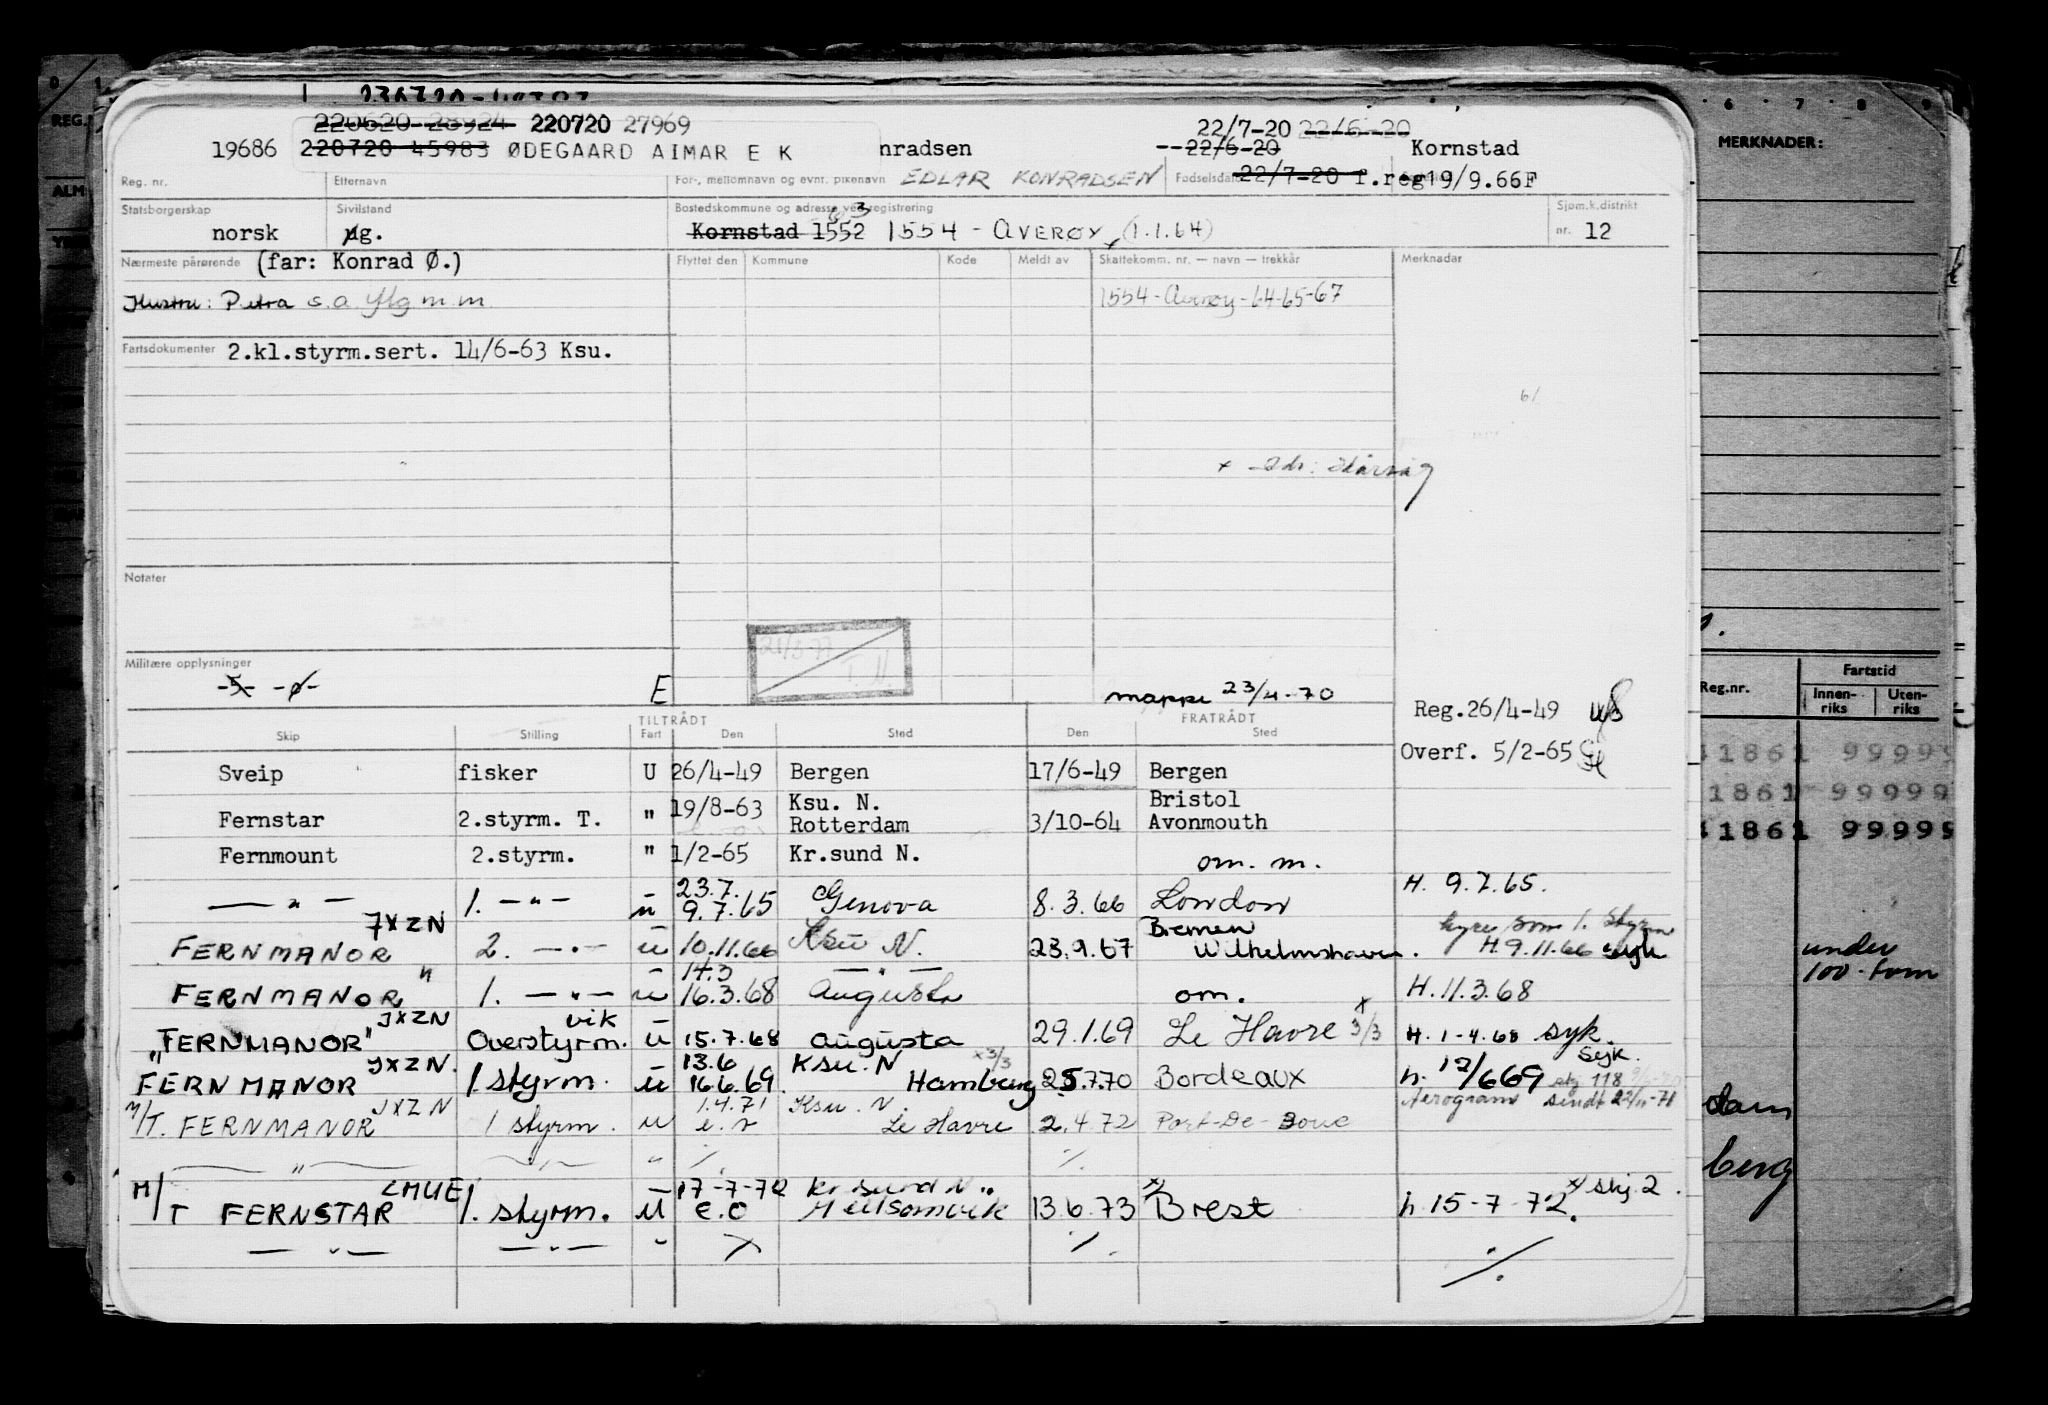 220620 28924 220720 27969
22/7-20 22/6-20
19686 220720 45983 ØDEGAARD AIMAR E K nradsen 22/6-20 Kornstad
Reg. nr. Etternavn For-, mellomnavn og evnt. pikenavn EDLAR KONRADSEN Fødselsdato 22/7-20 f.reg19/9.66F
Statsborgerskap Sivilstand Bostedskommune og adresse ved registrering Sjøm.k.distrikt
norsk ug. Kornstad 1552 1554 - AVERØY (1.1.64) nr. 12
Nærmeste pårørende (far: Konrad Ø.) Flyttet den Kommune Kode Meldt av Skattekomm. nr. — navn — trekkår Merknader
Hustru: Petra s.a flg m.m 1554-Averøy-64-65-67
Fartsdokumenter 2.kl.styrm.sert. 14/6-63 Ksu.
Notater
Militære opplysninger
-5- -ø- E mappe 23/4-70
TILTRÅDT FRATRÅDT Reg.26/4-49
Skip Stilling Fart Den Sted Den Sted
Overf. 5/2-65
Sveip fisker U 26/4-49 Bergen 17/6-49 Bergen
Ksu. N. Bristol
Fernstar 2.styrm. T. " 19/8-63 Rotterdam 3/10-64 Avonmouth
Fernmount 2.styrm. " 1/2-65 Kr.sund N. om. m.
23.7. H. 9.7.65.
— " — 1. — " — u 9.7.65 Genova 8.3.66 London
JXZN Bremen hyre som 1. styrm
FERNMANOR 2. — " — u 10.11.66 Ksu N. 23.9.67 Wilhelmshaven. H. 9.11.66 syk
" 14.3 — " —
FERNMANOR 1. — " — u 16.3.68 Augusta om. H. 11.3.68
JXZN vik
"FERNMANOR" Overstyrm. u 15.7.68 Augusta 29.1.69 Le Havre x 3/3 H. 1-4.68 syk.
JXZN. 13.6 Ksu. N x3/3 Syk.
FERNMANOR 1. styrm. u 16.6.69 Hamburg 25.7.70 Bordeaux h. 12/669 skj 118
JXZN 1.4.71 Ksu. N Aerogram sendt 22/11-71
M/T. FERNMANOR 1 styrm. u e.r Le Havre 2.4.72 Port-De-Bouc
— " — — " — " ·/. ·/.
LMUE 17-7-72 Kr.sund N x skj. 2.
M/T FERNSTAR 1. styrm. u e.o 13.6.73 x Brest h 15-7-72.
— " — — " — " ·/. ·/.
·/.
0 1
REG.
6 7 8 9
MERKNADER:
Reg.nr. Fartstid
Innen-riks Uten-riks
1861 9999
1861 99999
1861 99999
under
100-tonn
dam
berg